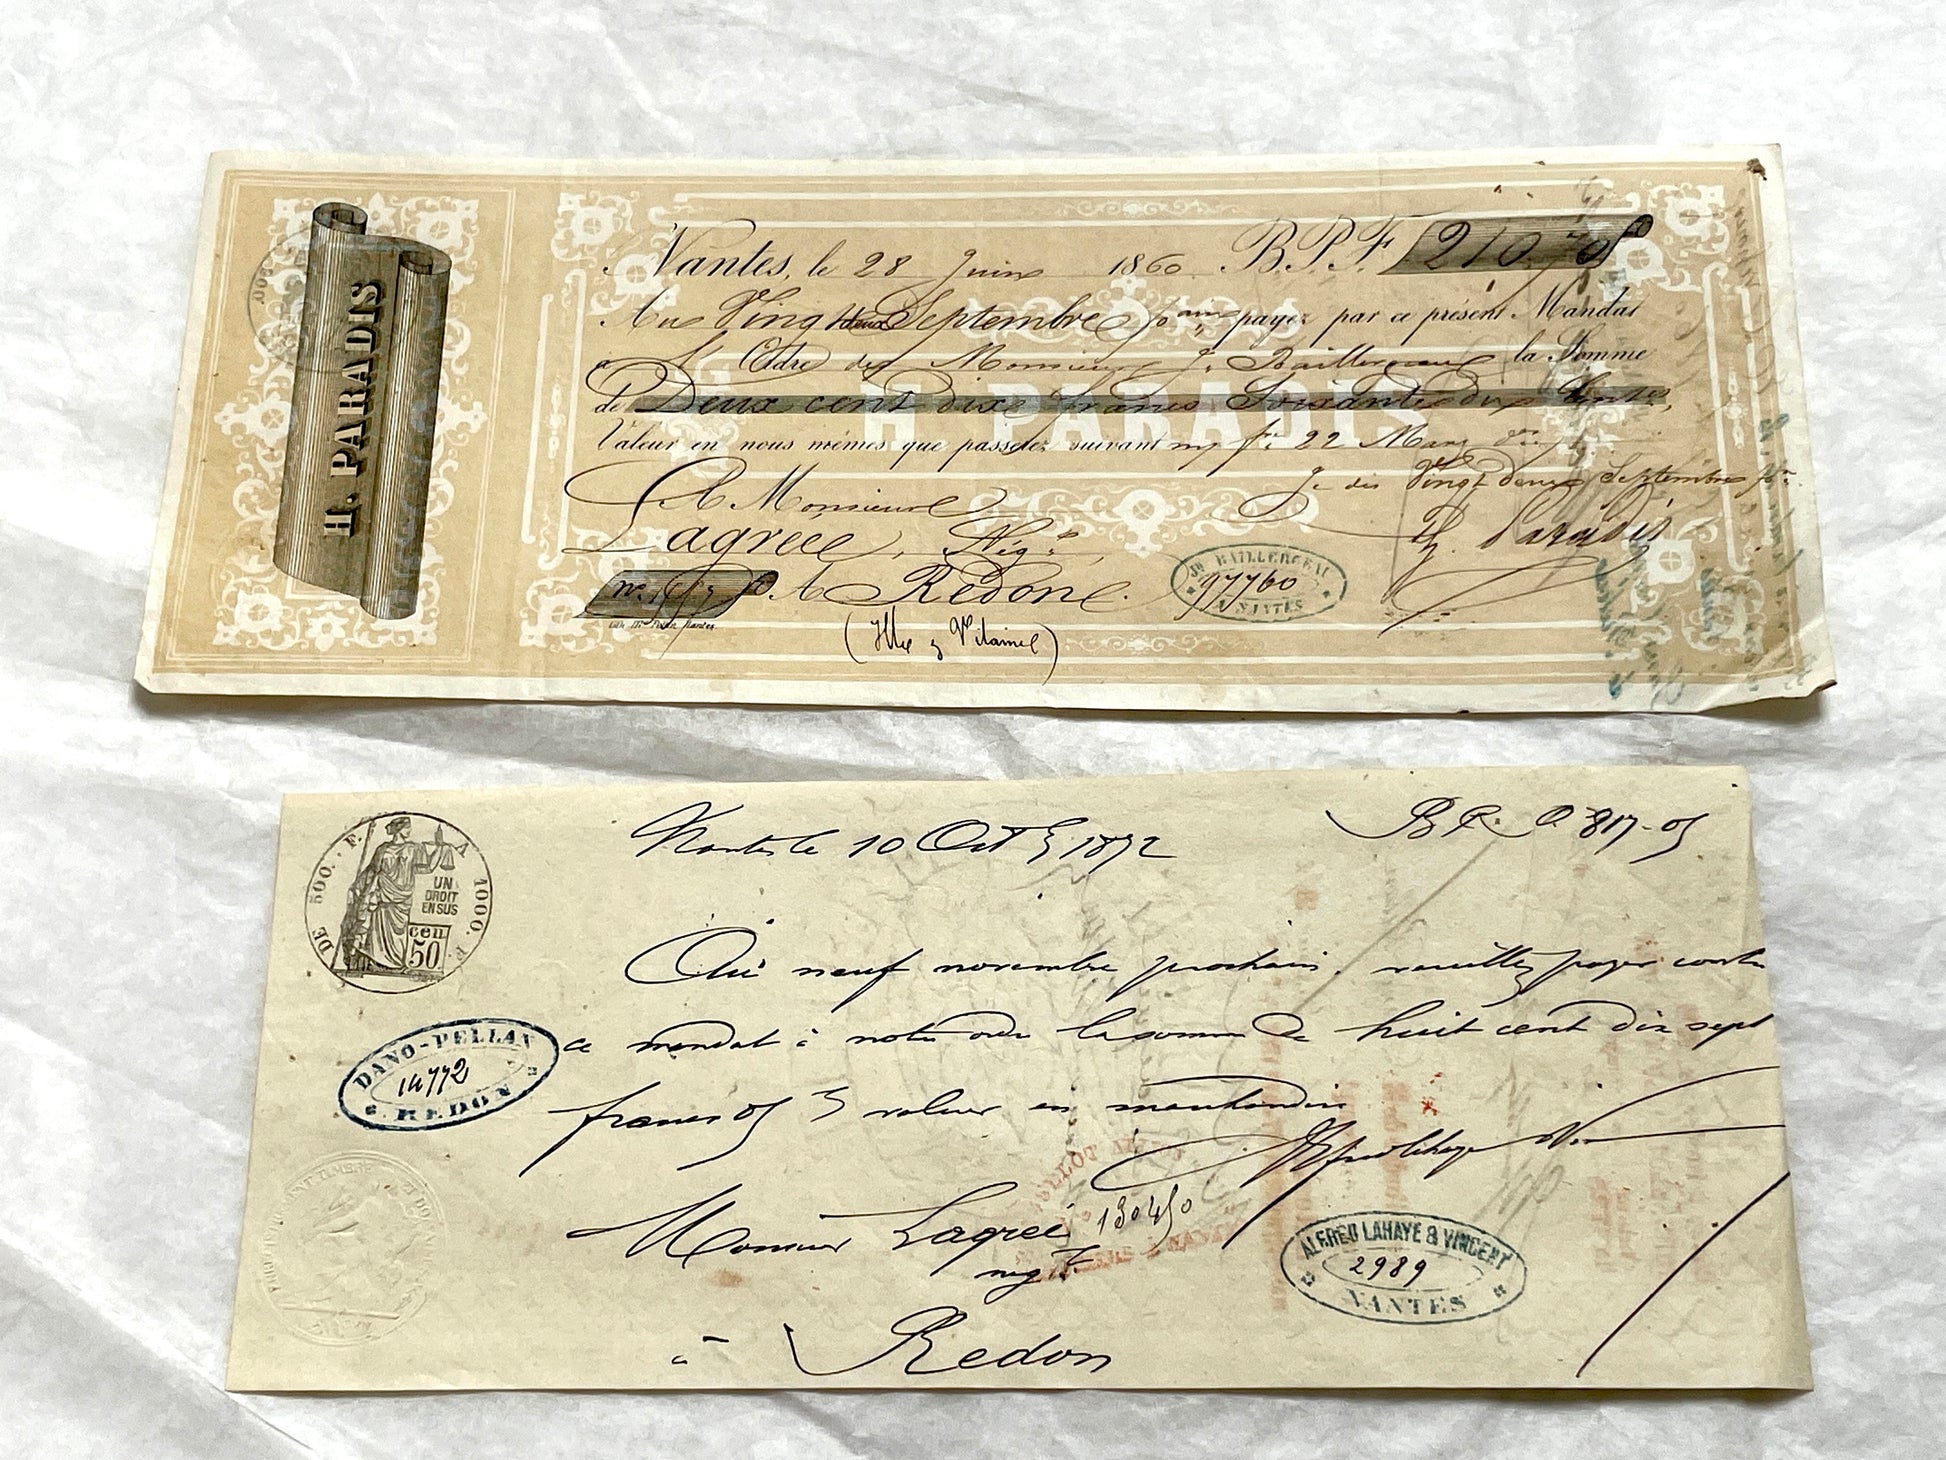 H. PARADIS
Nantes, le 28 Juin 1860. B.P.F. 210.70
Au Vingt deux Septembre pain payez par ce présent Mandat
a L' Ordre de Monsieur J. Baillergeau la Somme
de Deux cent dix francs Soixante dix Cent.es
Valeur en nous mêmes que passerez suivant m/ f.re 22 Mars d.er
Je dis Vingt deux Septembre p.in
A Monsieur
Lagrée, Nég.t
H. Paradis
A Redon.
(Ille & Vilaine)
JH BAILLERGEAU
97760
NANTES
H. PARADIS
DE 500. F. A 1000. F.
UN
DROIT
EN SUS
50 cen
Nantes le 10 Oct 1872
B.P. 817-05
Au neuf novembre prochain, veuillez payer contre
ce mandat à notre ordre la somme de huit cent dix sept
francs 05 valeur en marchandises
DANO-PELLAN
14772
REDON
Alfred Lahaye & Vin
Monsieur Lagrée
130450
neg.t
à Redon
ALFRED LAHAYE & VINCENT
2989
NANTES